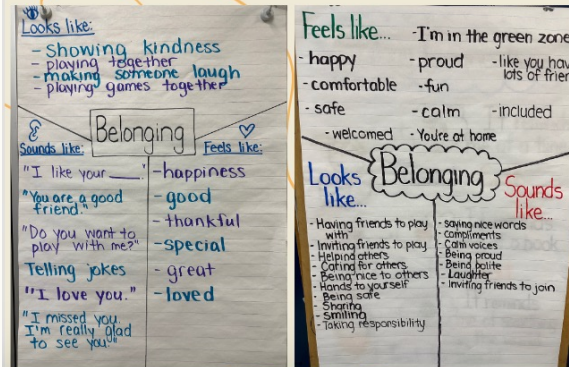 Looks like:
- Showing kindness
- playing together
- making someone laugh
- playing games together
Belonging
Sounds like:
"I like your ____."
"You are a good
friend."
"Do you want to
play with me?"
Telling jokes
"I love you."
"I missed you.
I'm really glad
to see you"
Feels like:
- happiness
- good
- thankful
- special
- great
- loved
Feels like...
- happy
- comfortable
- safe
- welcomed
- I'm in the green zone
- proud
- fun
- calm
- You're at home
- like you
lots of
- included
Belonging
Looks
like...
- Having friends to play
with
- Inviting friends to play
- Helping others
- Caring for others
- Being nice to others
- Hands to yourself
- Being safe
- Sharing
- Smiling
- Taking responsibility
Sounds
like...
- saying nice words
- compliments
- Calm voices
- Being proud
- Being polite
- Laughter
- Inviting friends to join